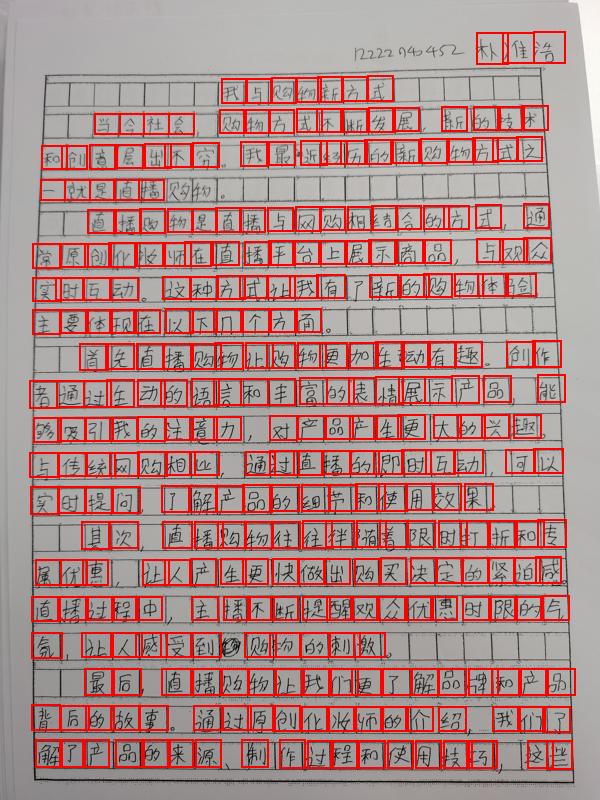 12222740452 朴准浩
我与购物新方式
当今社会，购物方式不断发展，新的技术
和创首层出不穷。我最近经历的新购物方式之
一就是直播购物。
直播购物是直播与网购相结合的方式，通
常原创化妆师在直播平台上展示商品，与观众
实时互动。这种方式让我有了新的购物体验
主要体现在以下几个方面。
首先直播购物让购物更加生动有趣。创作
者通过生动的语言和丰富的表情展示产品，能
够吸引我的注意力，对产品产生更大的兴趣，
与传统网购相比，通过直播的即时互动，可以
实时提问，了解产品的细节和使用效果。
其次，直播购物往往伴随着限时打折和专
属优惠，让人产生更快做出购买决定的紧迫感。
直播过程中，主播不断提醒观众优惠时限的气
氛，让人感受到购物的刺激。
最后，直播购物让我们更了解品牌和产品
背后的故事。通过原创化妆师的介绍，我们了
解了产品的来源、制作过程和使用技巧，这些